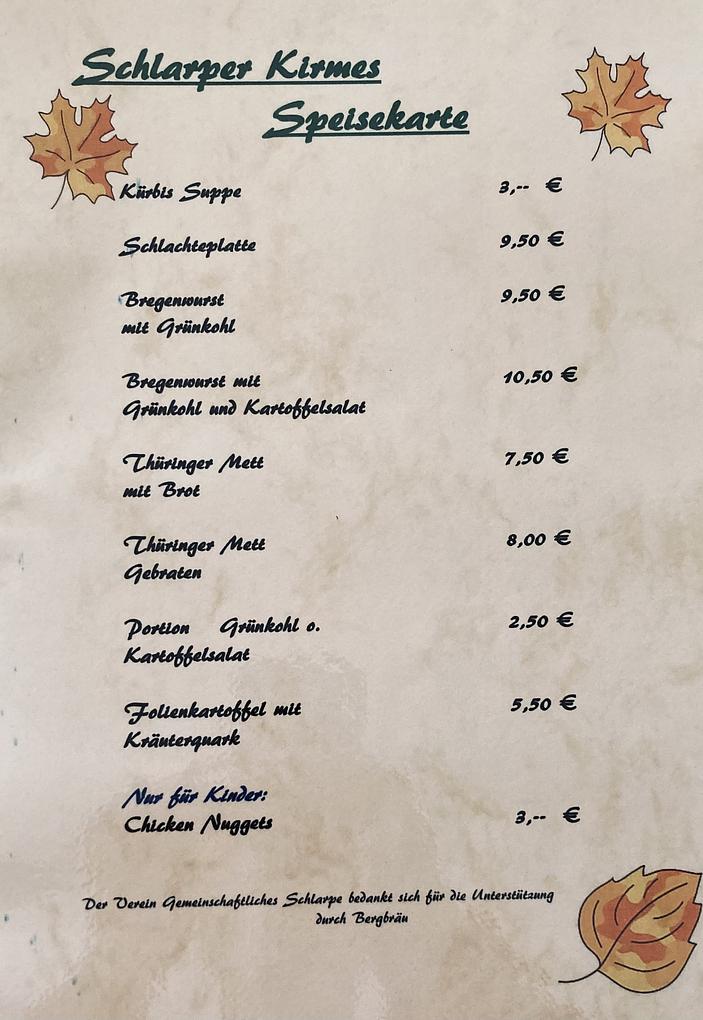 Schlarper Kirmes
Speisekarte
Kürbis Suppe 3,-- €
Schlachteplatte 9,50 €
Bregenwurst 9,50 €
mit Grünkohl
Bregenwurst mit 10,50 €
Grünkohl und Kartoffelsalat
Thüringer Mett 7,50 €
mit Brot
Thüringer Mett 8,00 €
Gebraten
Portion Grünkohl o. 2,50 €
Kartoffelsalat
Folienkartoffel mit 5,50 €
Kräuterquark
Nur für Kinder:
Chicken Nuggets 3,-- €
Der Verein Gemeinschaftliches Schlarpe bedankt sich für die Unterstützung
durch Bergbräu